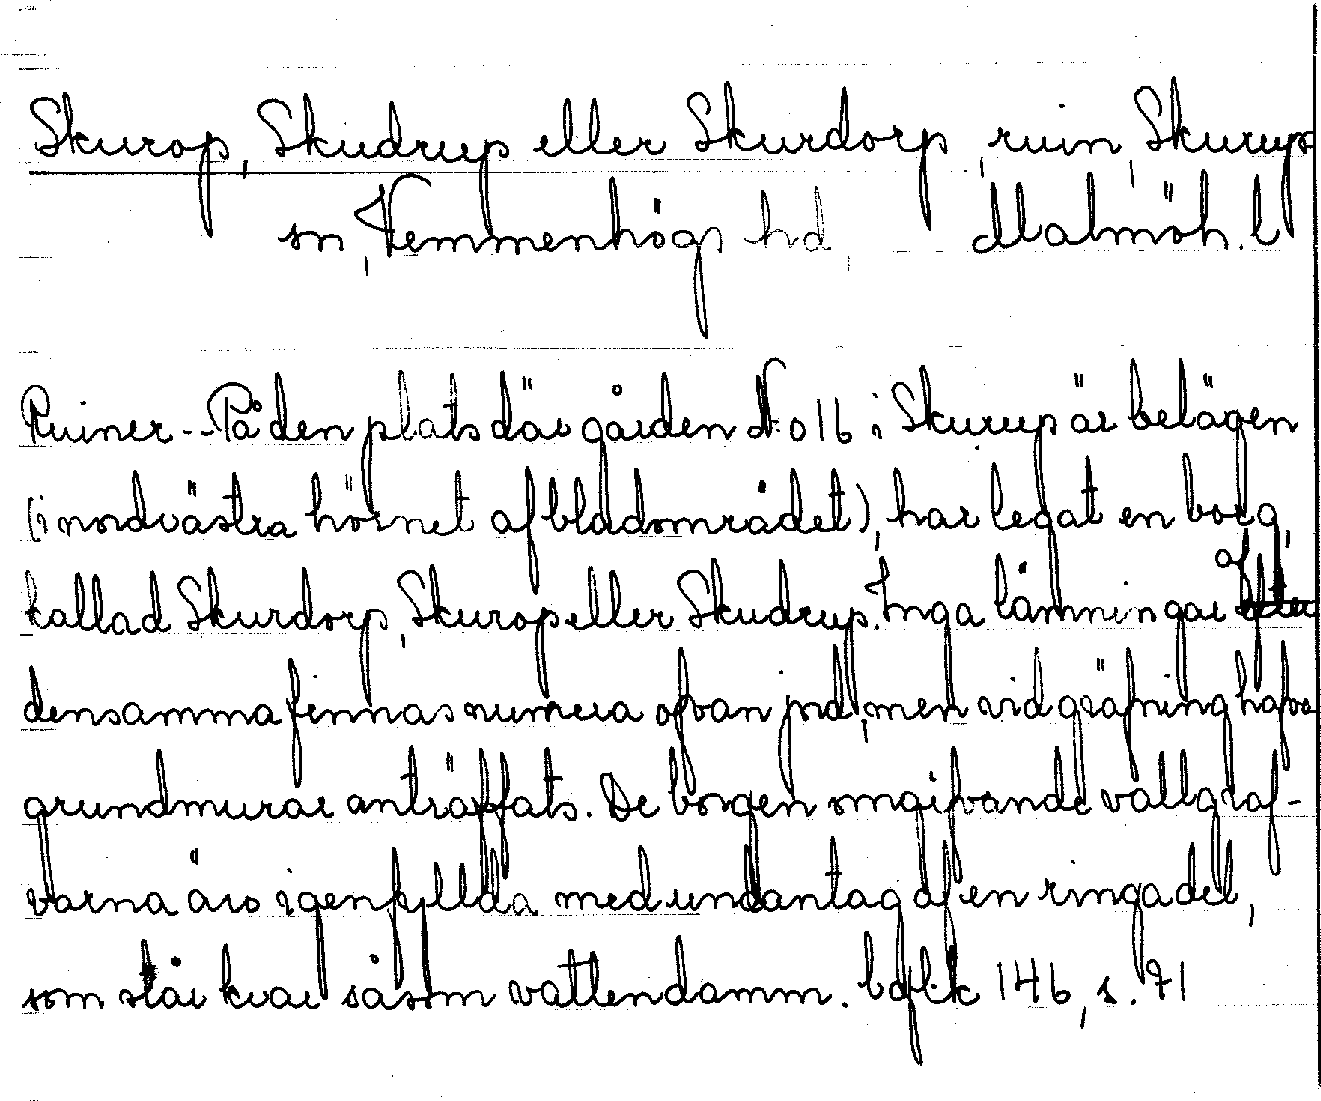 Skurop, Skudrup eller Skurdorp, ruin, Skurups
sn, Vemmenhögs hd, Malmöh. l
Ruiner.- På den plats där gården No 16 i Skurup är belägen
(i nordvästra hörnet af bladområdet), har legat en borg,
kallad Skurdorp, Skurop eller Skudrup. Inga lämningar af
densamma finnas numera ofvan jord, men vid gräfning hafva
grundmurar anträffats. De borgen omgifvande vallgraf-
varna äro igenfyllda med undantag af en ringa del,
som står kvar såsom vattendamm. bgfl.k 146, s. 71